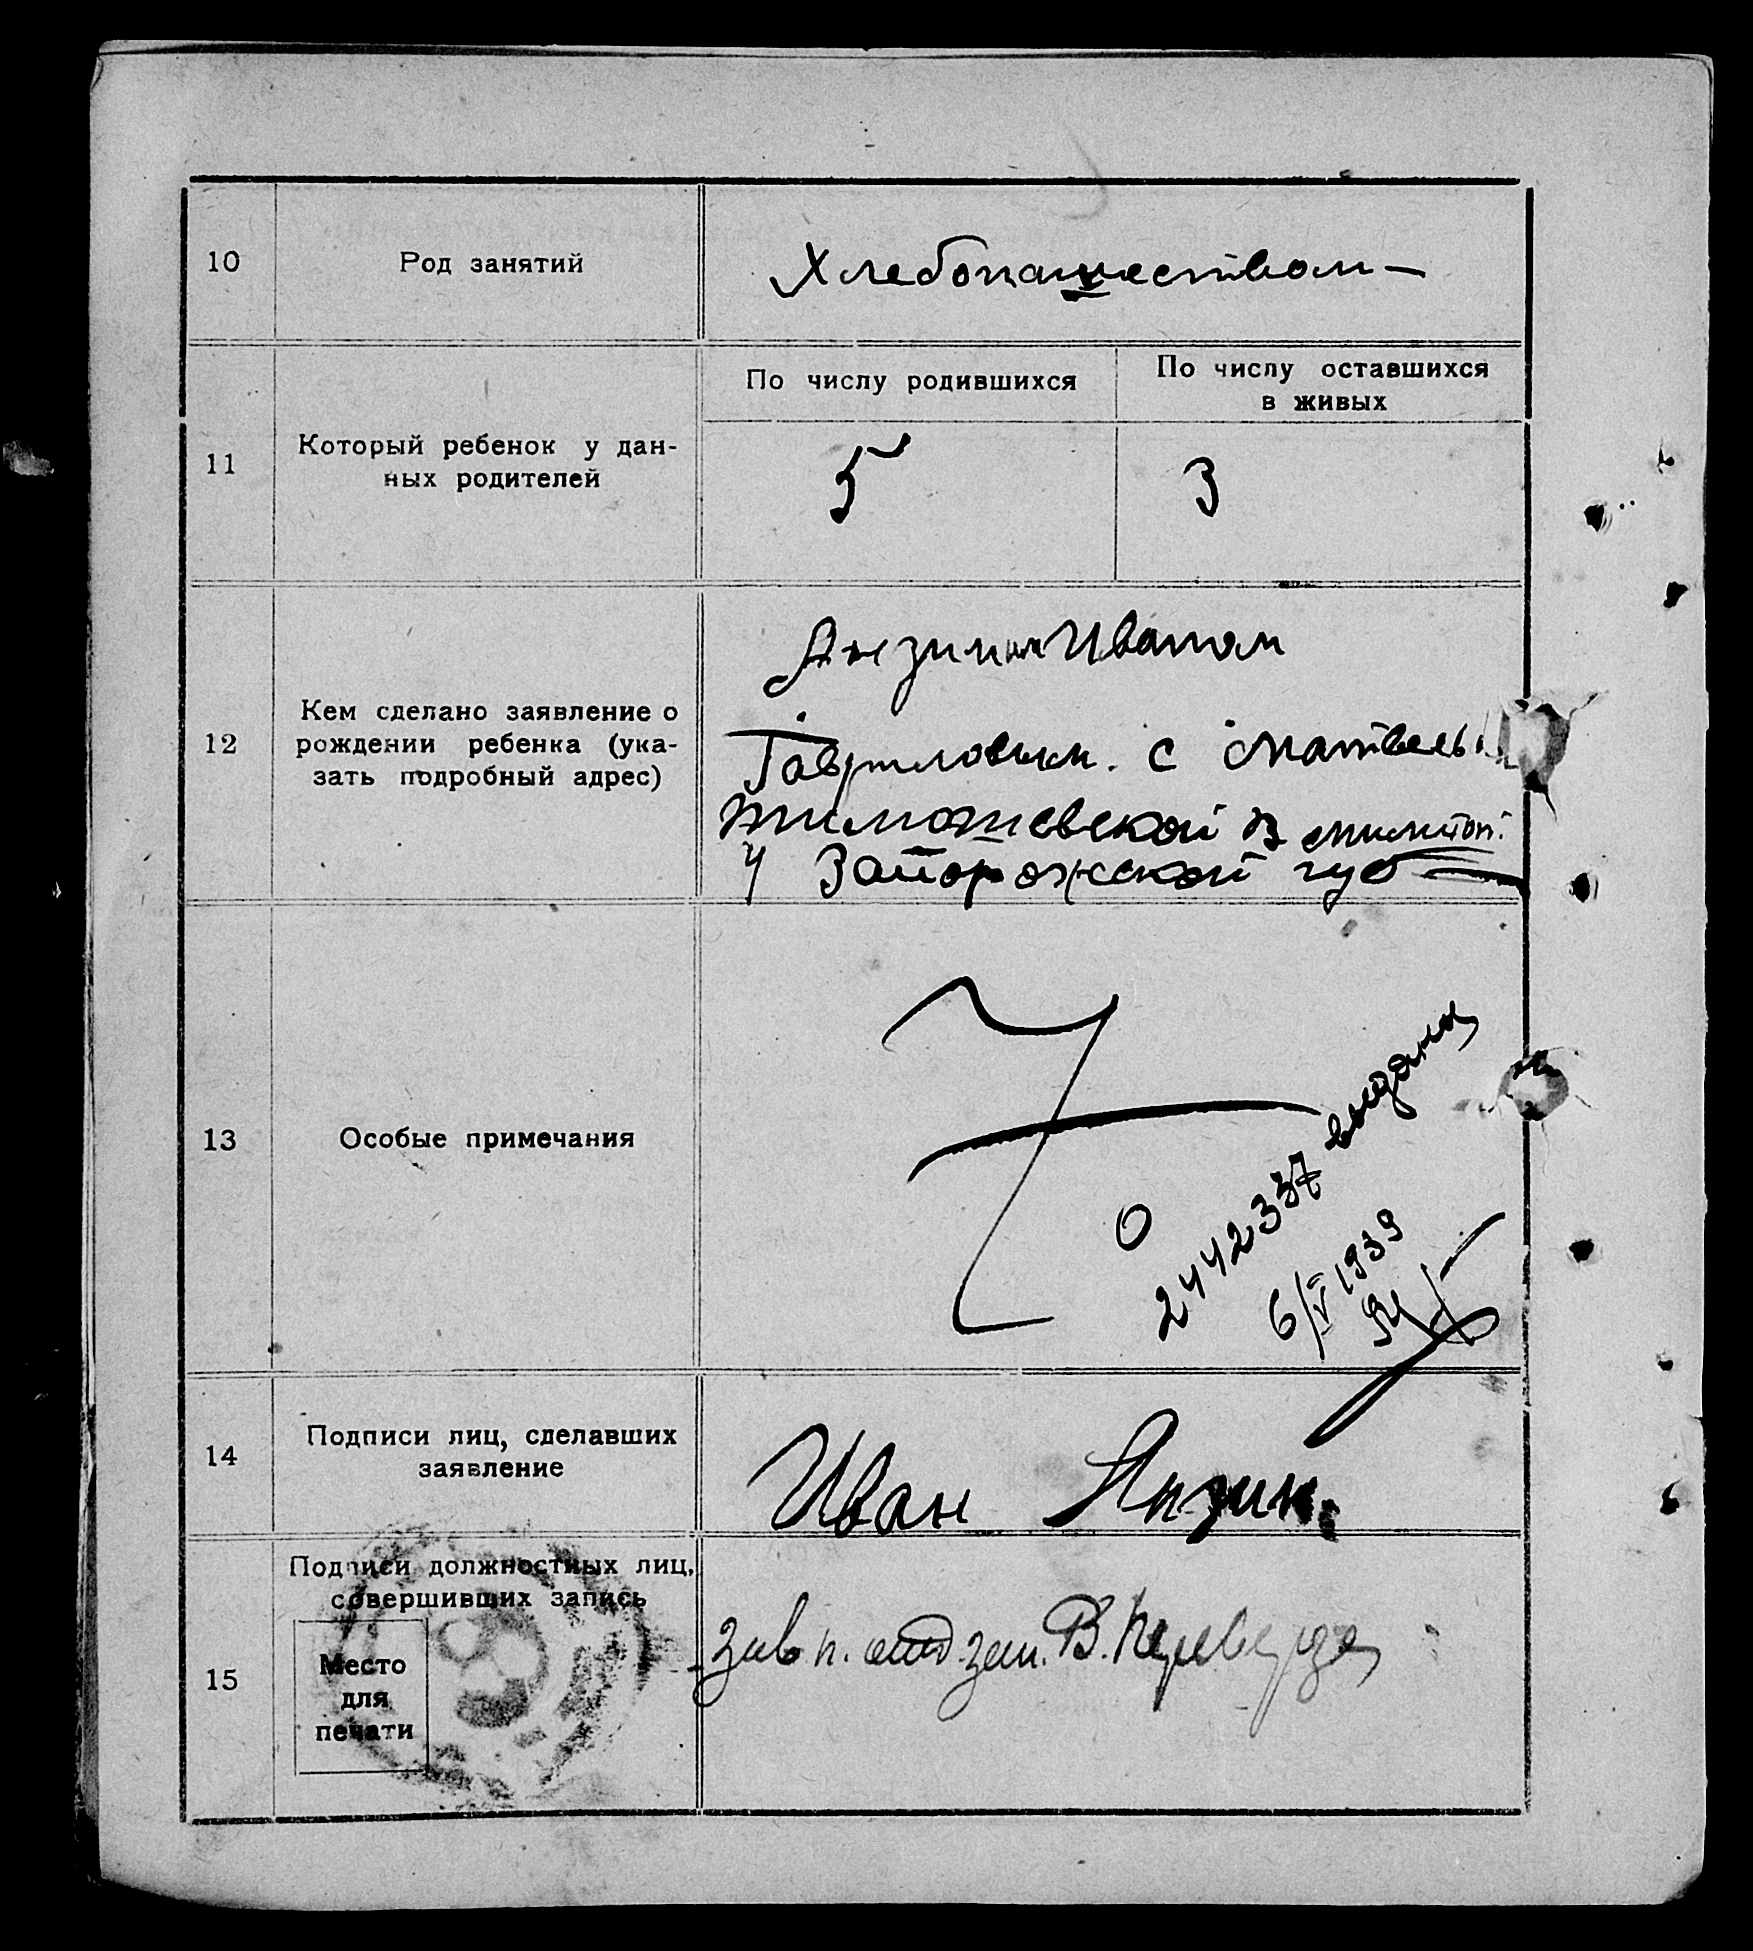 10 Род занятий Хлебопашеством
11 Который ребенок у дан-
ных родителей
По числу родившихся
5
По числу оставшихся
в живых
3
12 Кем сделано заявление о
рождении ребенка (ука-
зать подробный адрес)
Янзиным Иваном
Гавриловым. с
Тимошевской в
у Запорожской губ
13 Особые примечания
О
2442337 выдана
6/V 1939
14 Подписи лиц, сделавших
заявление
Иван Янзин.
15 Подписи должностных лиц,
совершивших запись
Место
для
печати
зав п. отд. зап. В.